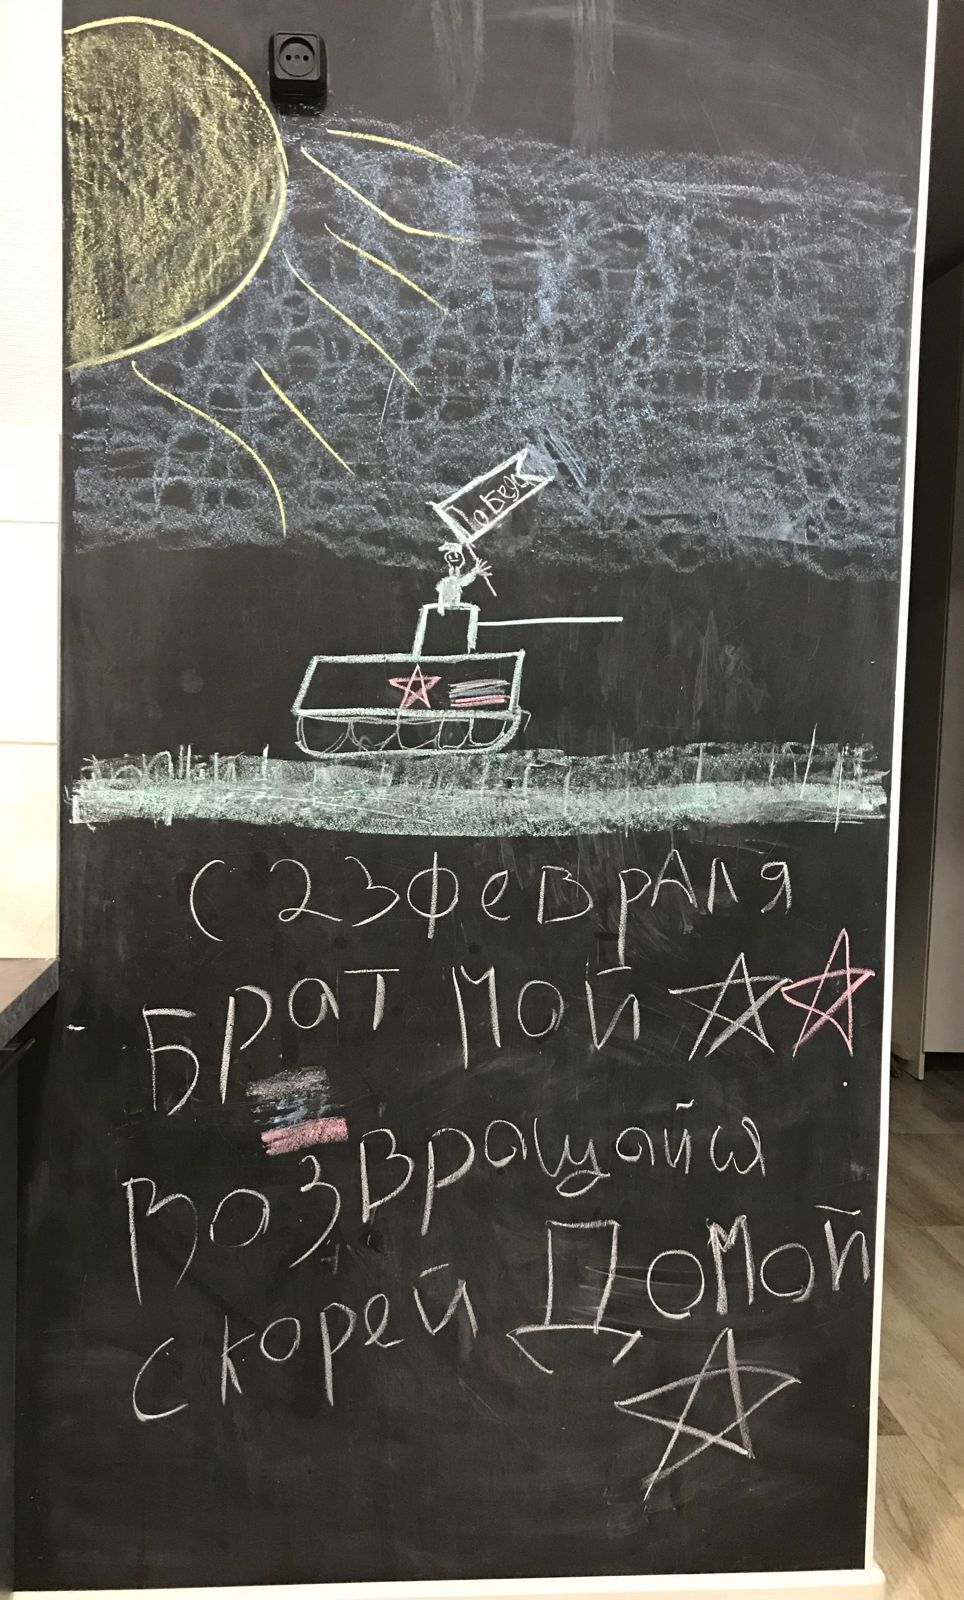 Победа
С 23 февраля
Брат мой
Возвращайся
скорей Домой